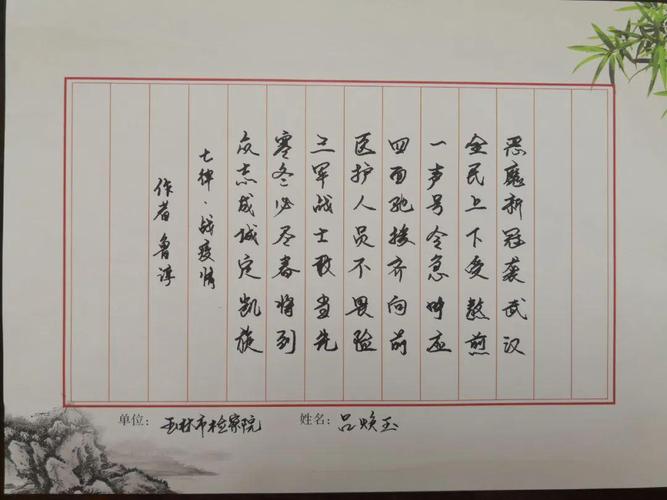 恶魔新冠袭武汉
全民上下受熬煎
一声号令急响应
四面驰援齐向前
医护人员不畏险
三军战士敢当先
寒冬必尽春将到
众志成诚定凯旋
七律·战疫情
作者 鲁
单位: 玉林市检察院 姓名: 吕焕玉